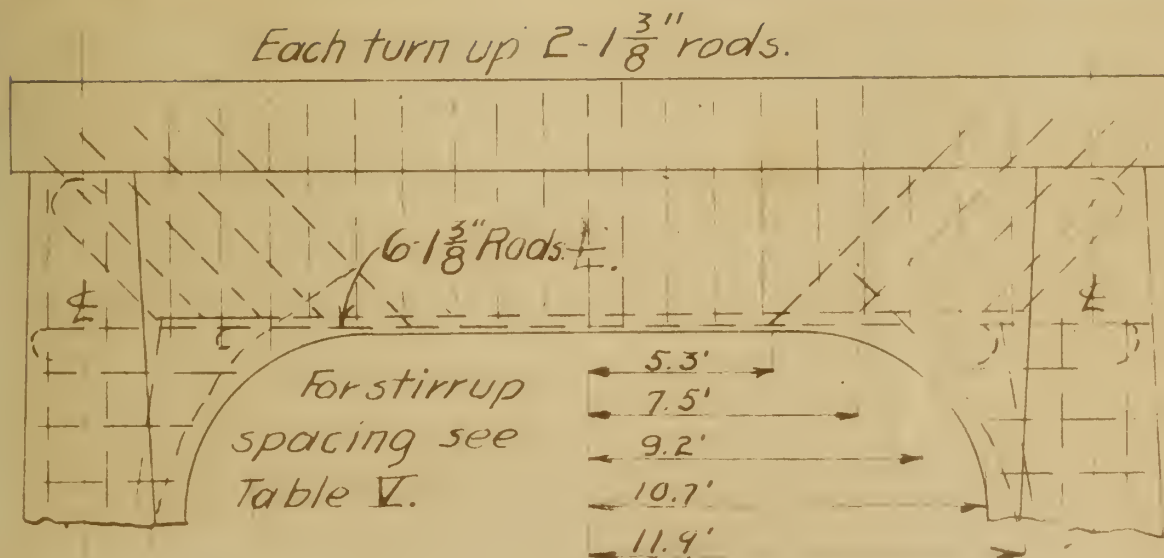 Each turn up 2-1 3/8" rods.
6-1 3/8" Rods.
℄
℄
℄
For stirrup
spacing see
Table V.
5.3'
7.5'
9.2'
10.7'
11.9'